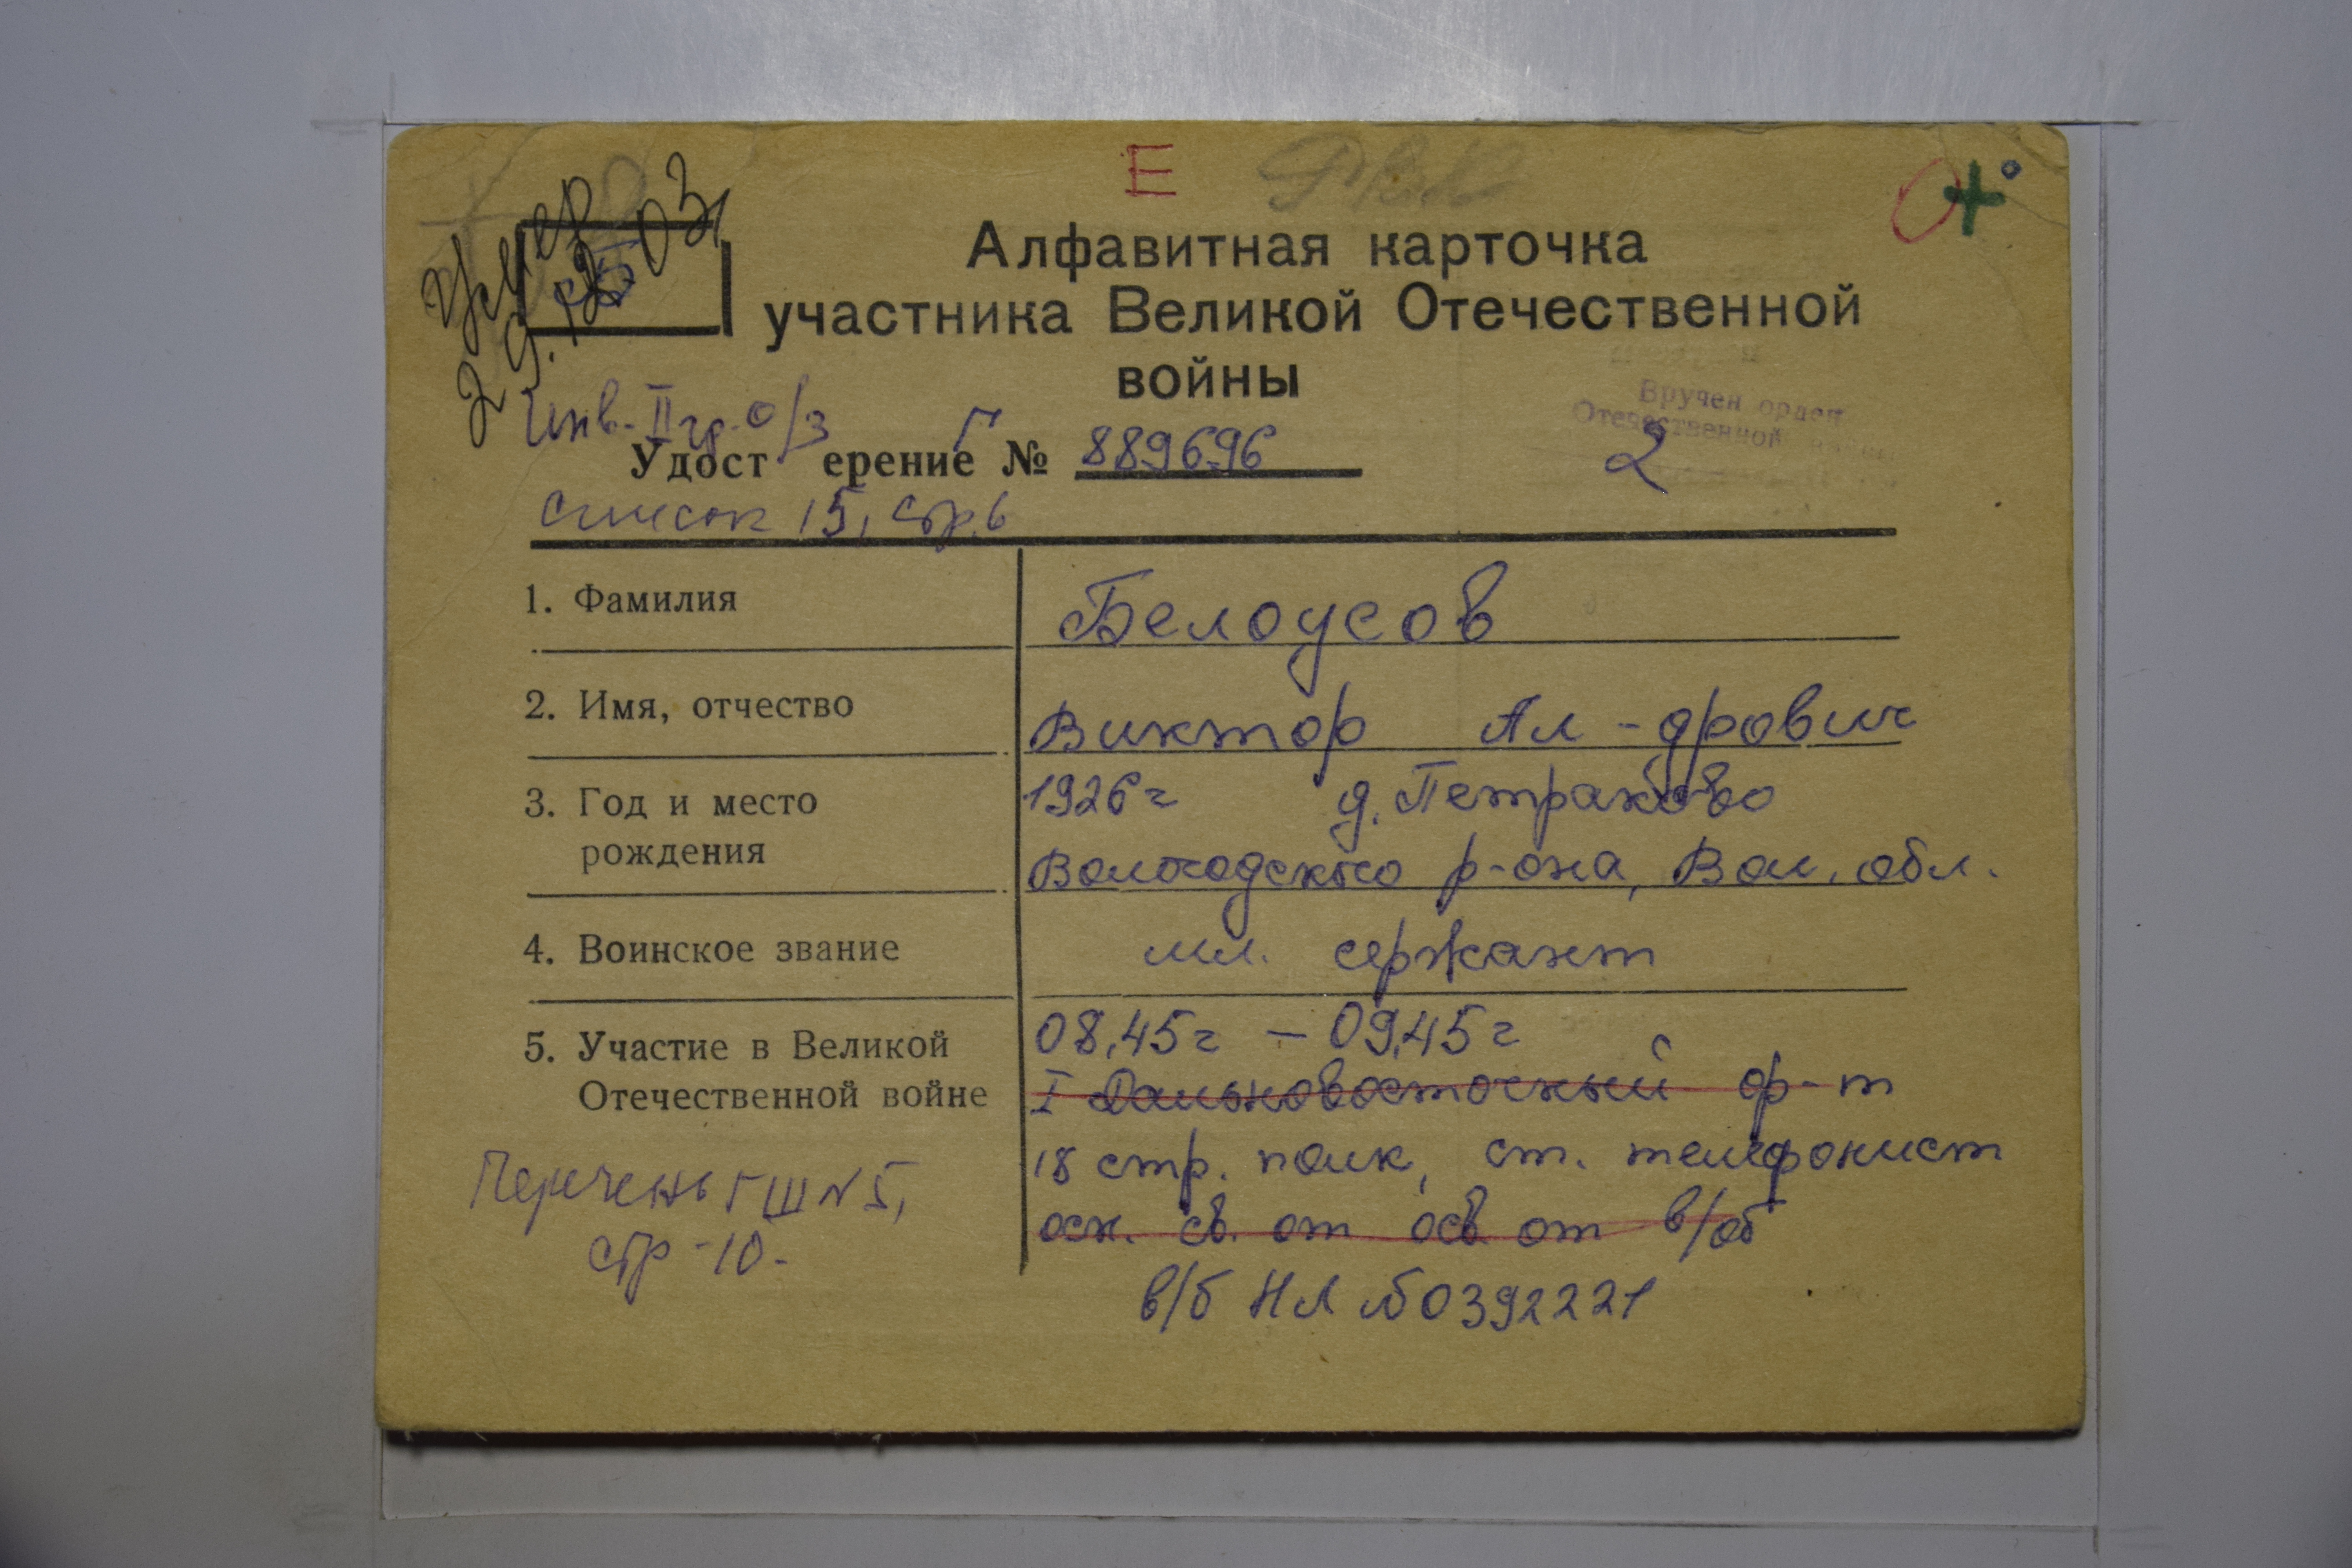 Е
О+
Умер
29.12.03
Алфавитная карточка
участника Великой Отечественной
войны
Вручен орден
Отечественной войны
2
Инв. II гр. о/з
Удост ерение № Г 889696
список 15, стр. 6
1. Фамилия Белоусов
2. Имя, отчество Виктор Ал-дрович
3. Год и место 1926 г д. Петраково
рождения Вологодского р-она, Вол. обл.
4. Воинское звание мл. сержант
5. Участие в Великой 08.45 г – 09.45 г
Отечественной войне I Дальновосточный ф-т
18 стр. полк, ст. телефонист
осн. св. от осв от в/об
Перечень ГШ № 5,
стр - 10 -
в/б НЛ № 0392221